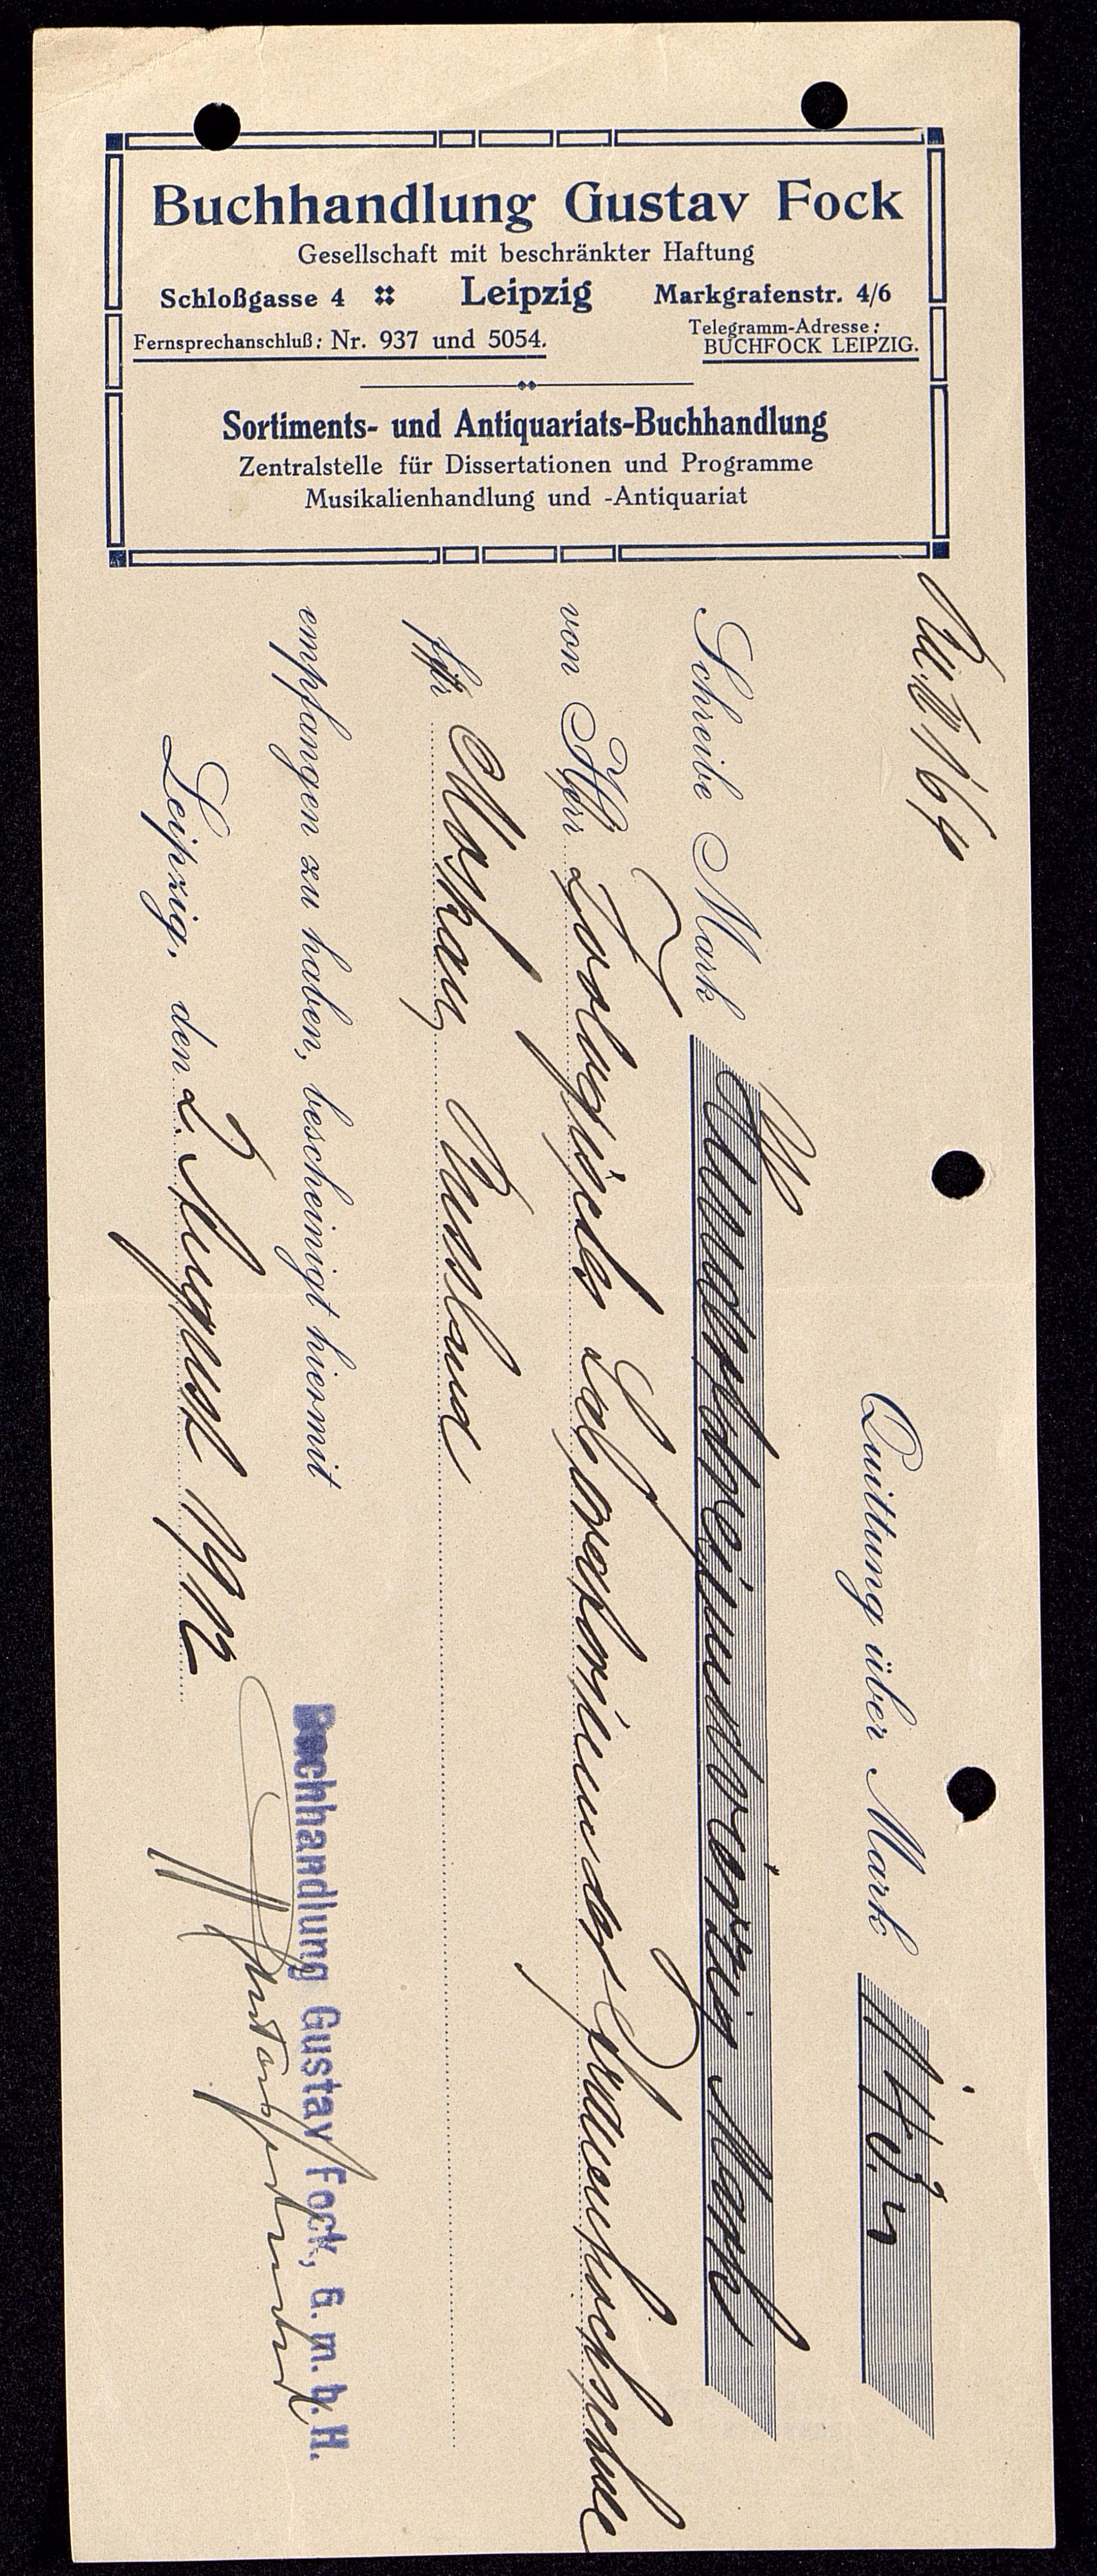 Buchhandlung Gustav Fock
Gesellschaft mit beschränkter Haftung
Schloßgasse 4 Leipzig Markgrafenstr. 4/6
Fernsprechanschluß: Nr. 937 und 5054.
Telegramm-Adresse:
BUCHFOCK LEIPZIG.
Sortiments- und Antiquariats-Buchhandlung
Zentralstelle für Dissertationen und Programme
Musikalienhandlung und -Antiquariat
Quittung über Mark 143.
Schreibe Mark Hundertdreiundvierzig Mark
von Herr Zoologisches Laboratorium der Frauenhochschule
für Moskau Russland
empfangen zu haben, bescheinigt hiermit
Leipzig, den 2. August 1912
Buchhandlung Gustav Fock, G. m. b. H.